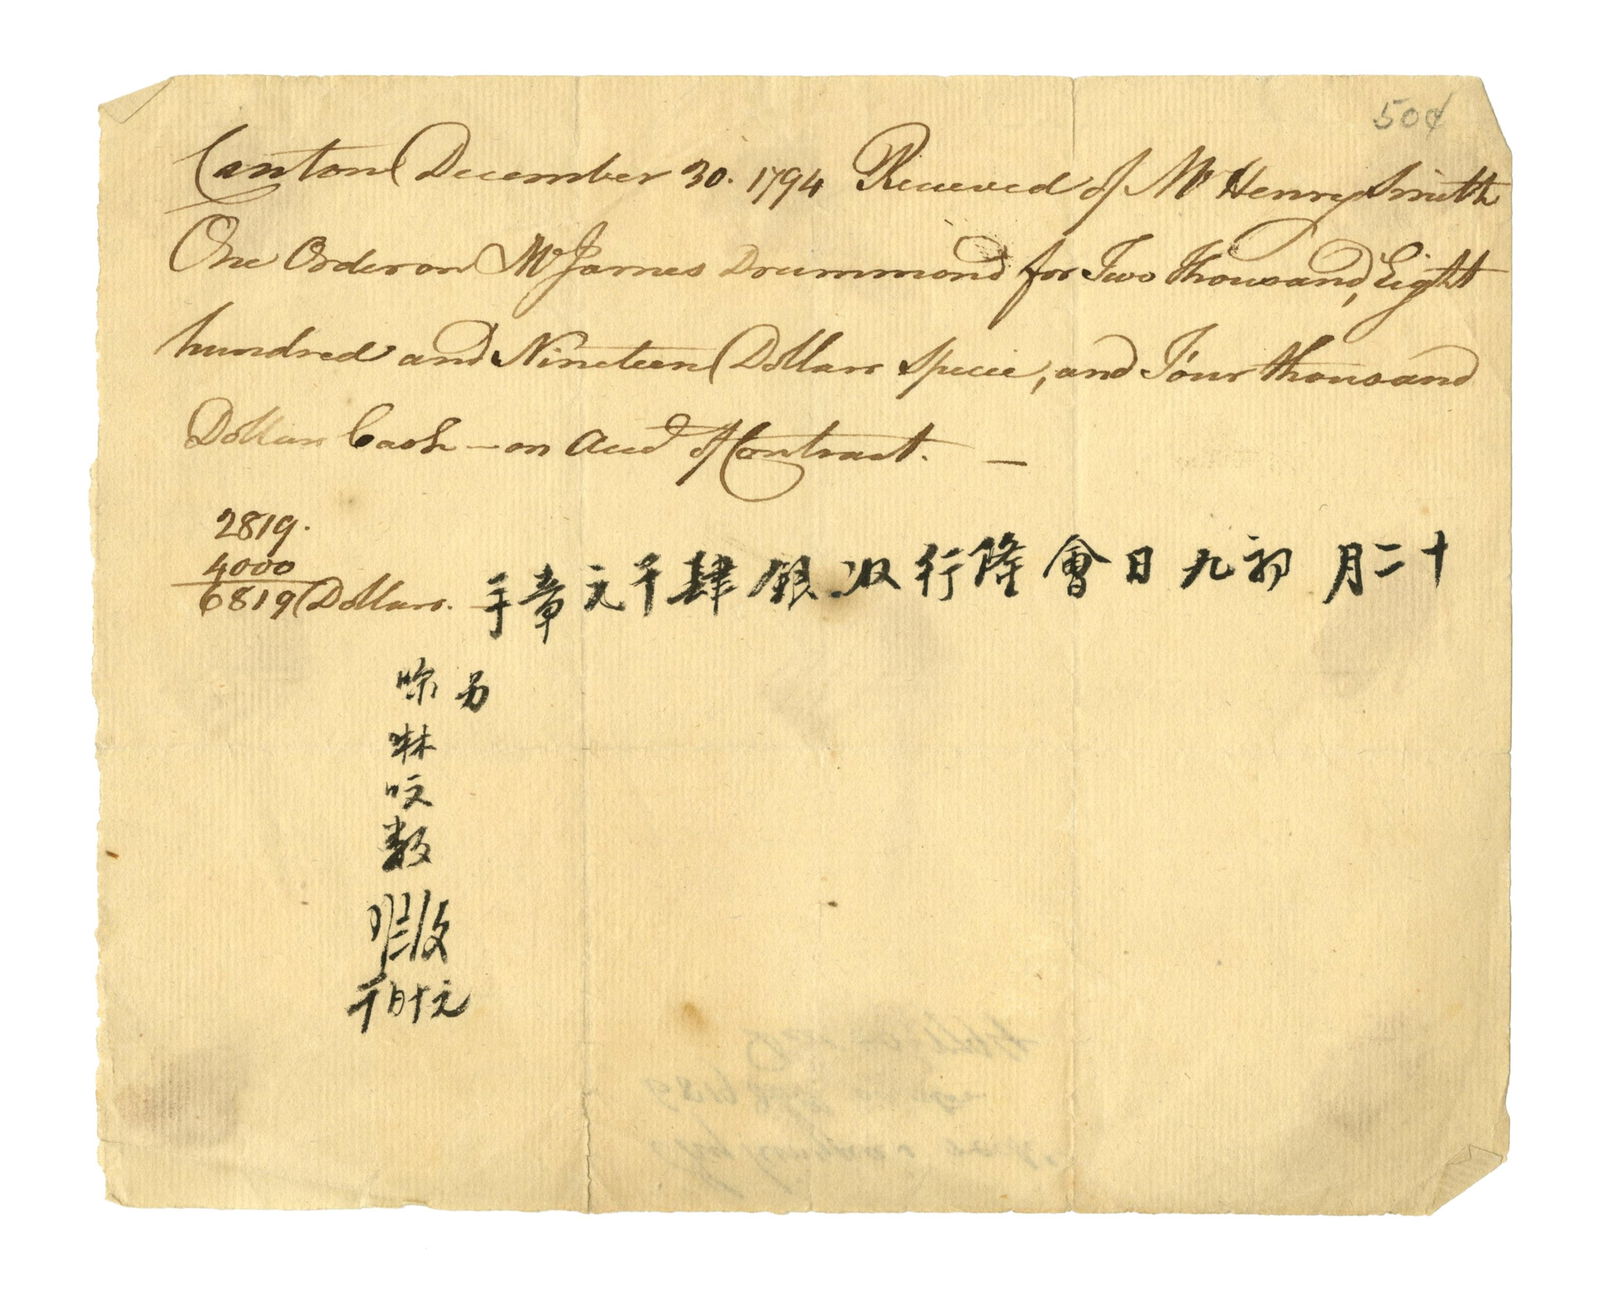 50¢
Canton December 30. 1794 Received of Mr Henry Smith
One Order on Mr James Drummond for Two Thousand, Eight
hundred and Nineteen Dollars Specie, and Four thousand
Dollars Cash — on Acct of Contract. —
2819.
4000
6819 Dollars.
十二月初九日會隆行收銀肆千元章手
另
啉呅数
〢〨〡〩
千百十元